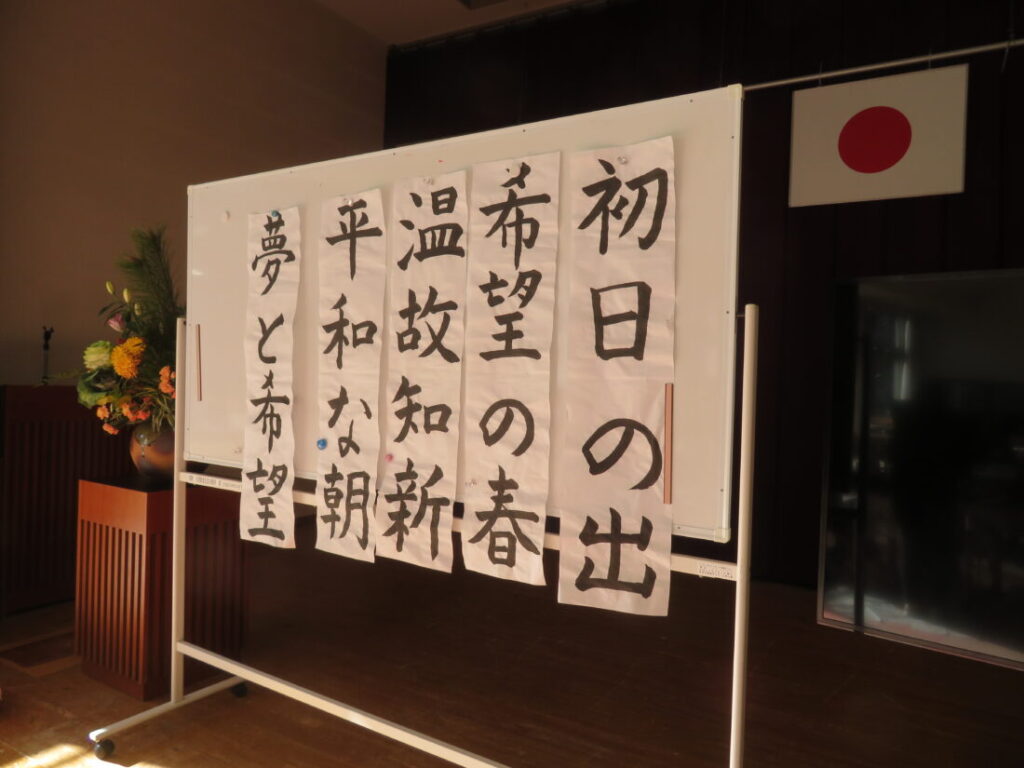 初日の出
希望の春
温故知新
平和な朝
夢と希望